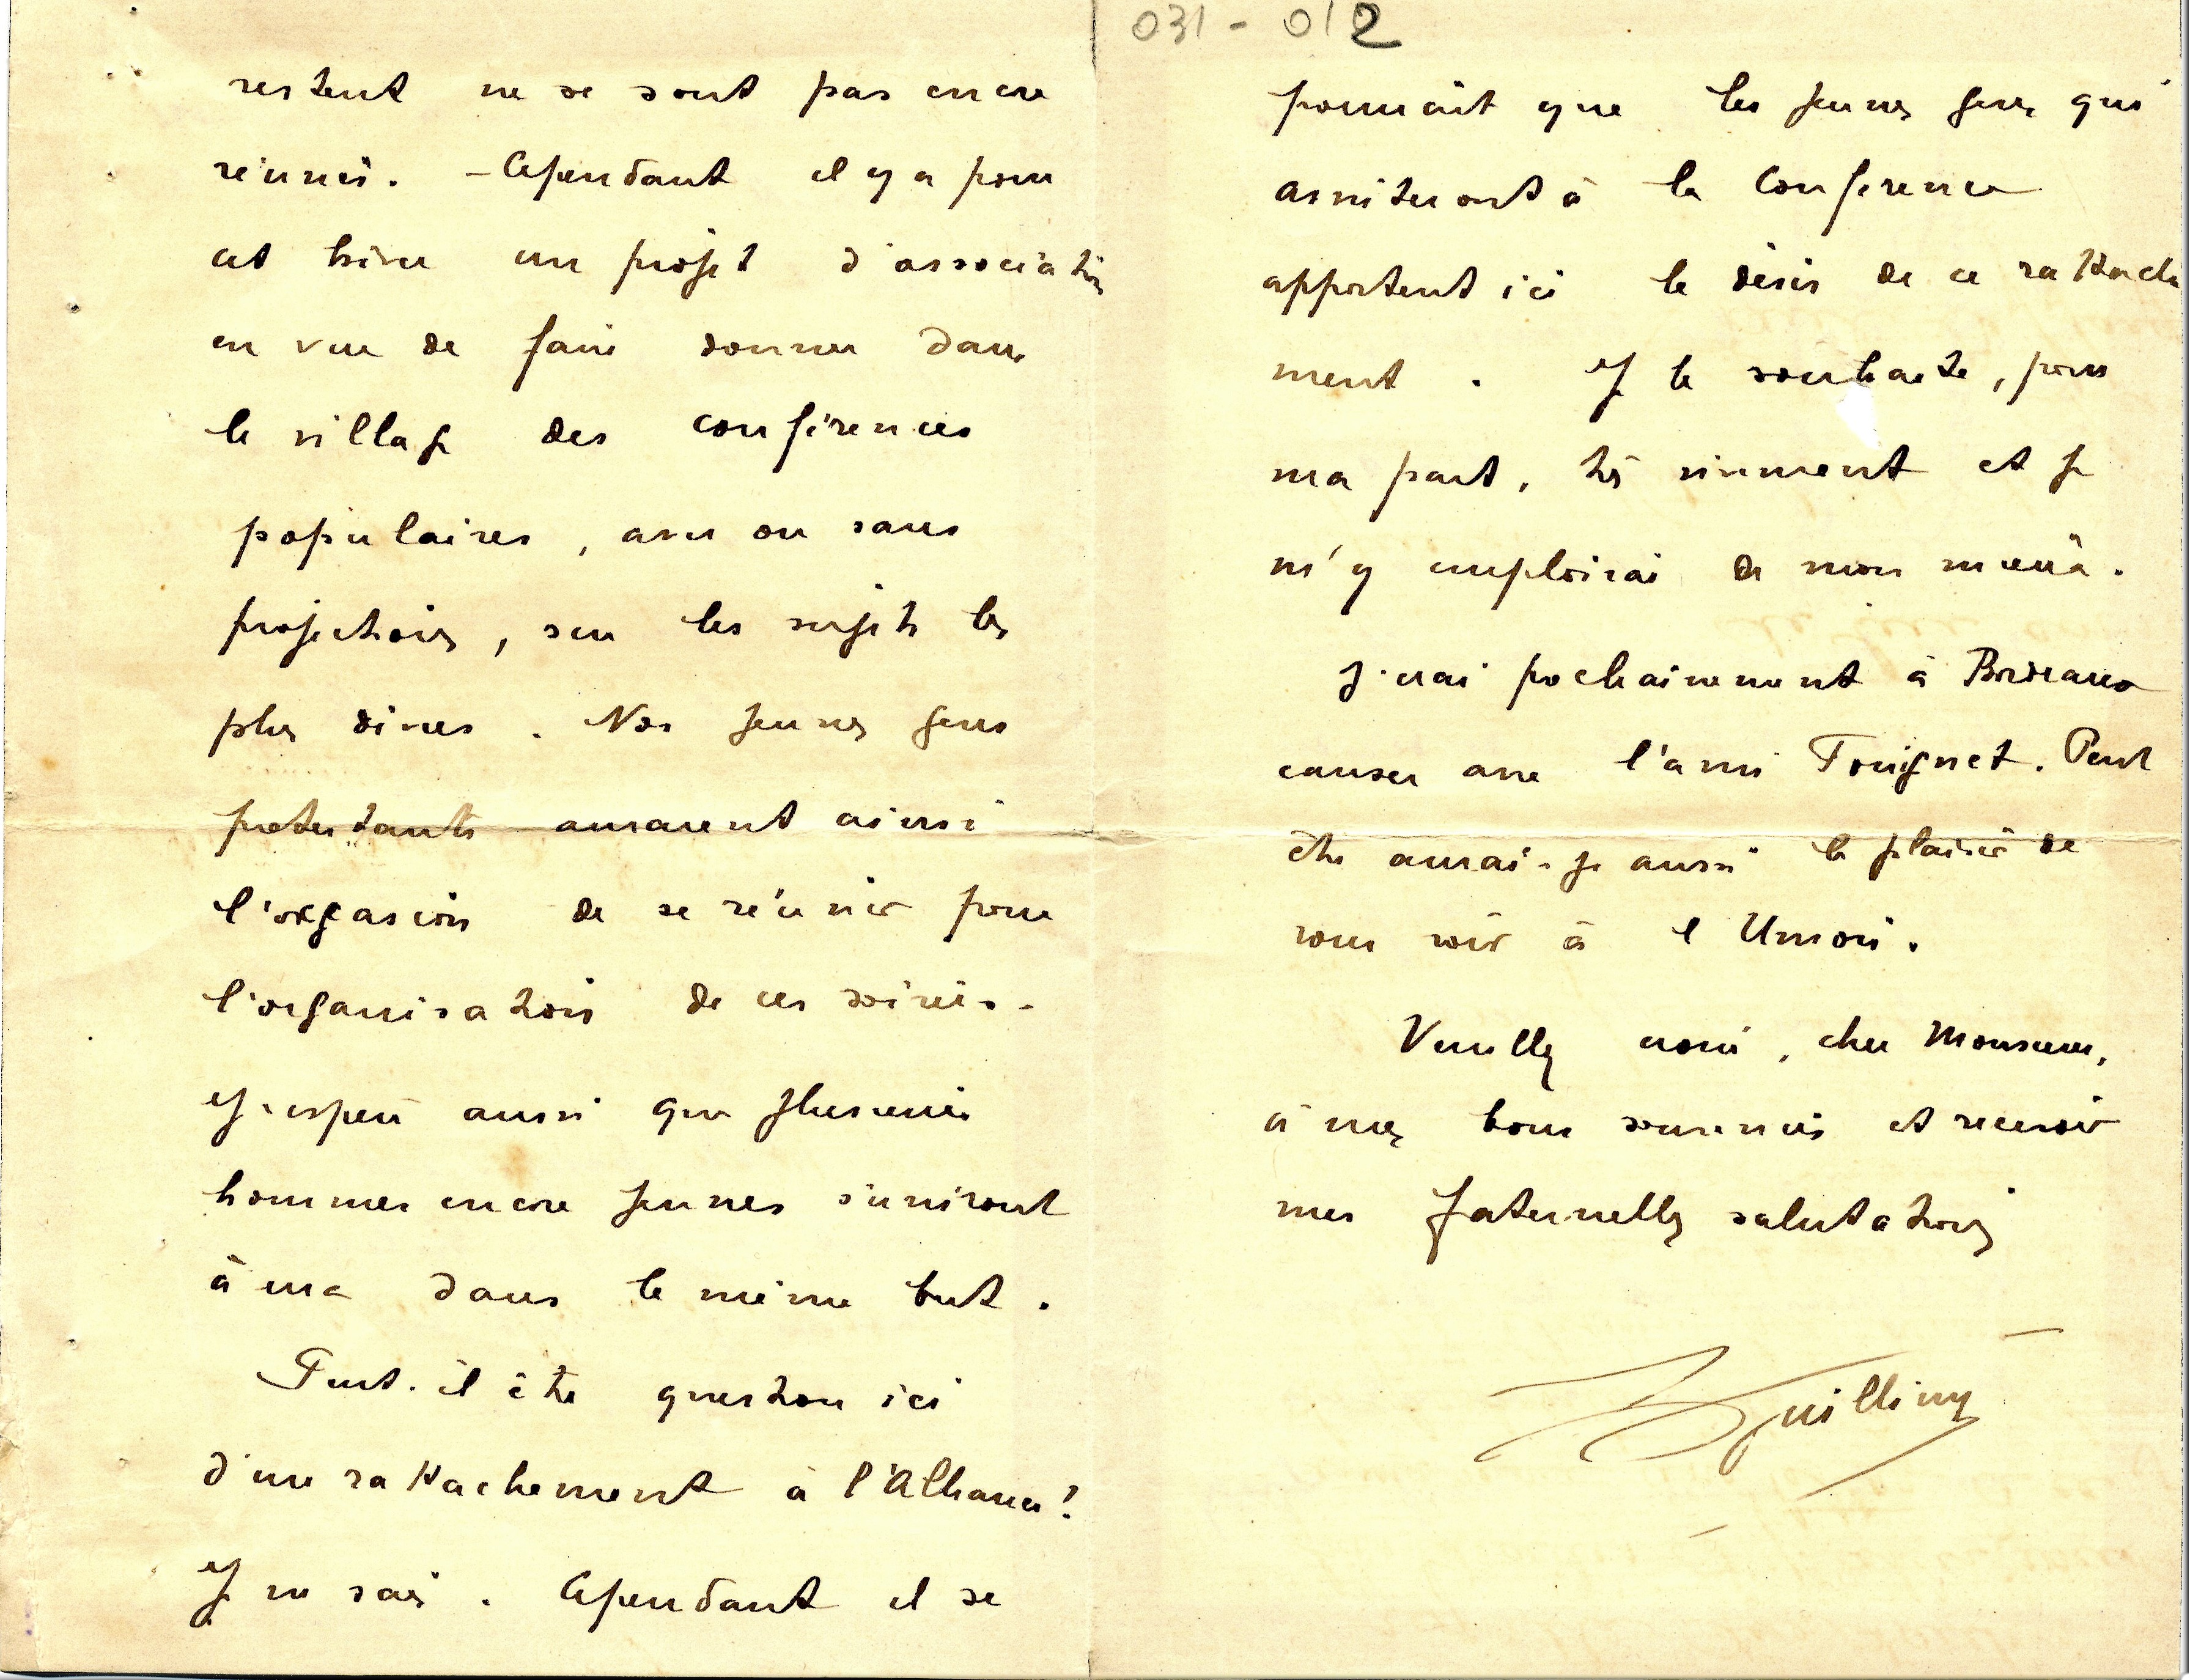 031-012
restent ne se sont pas encore
réunis. - Cependant il y a pour
cet hiver un projet d'association
en vue de faire donner dans
le village des conférences
populaires, avec ou sans
projections, sur les sujets les
plus divers. Nos jeunes gens
protestants auraient ainsi
l'occasion de se réunir pour
l'organisation de ces soirées.
J'espère aussi que plusieurs
hommes encore jeunes s'uniront
à eux dans le même but.
Peut-il être question ici
d'un rattachement à l'Alliance?
Je ne sais. Cependant il se
pourrait que les jeunes gens qui
assisteront à la Conférence
apportent ici le désir de ce rattache
ment. Je le souhaite, pour
ma part, très vivement et je
m'y emploirai de mon mieux.
J'irai prochainement à Bordeaux
causer avec l'ami Poignet. Peut
être aurai-je aussi le plaisir de
vous voir à l'Union.
Veuillez croire, cher Monsieur,
à mes bons souvenirs et recevoir
mes fraternelles salutations